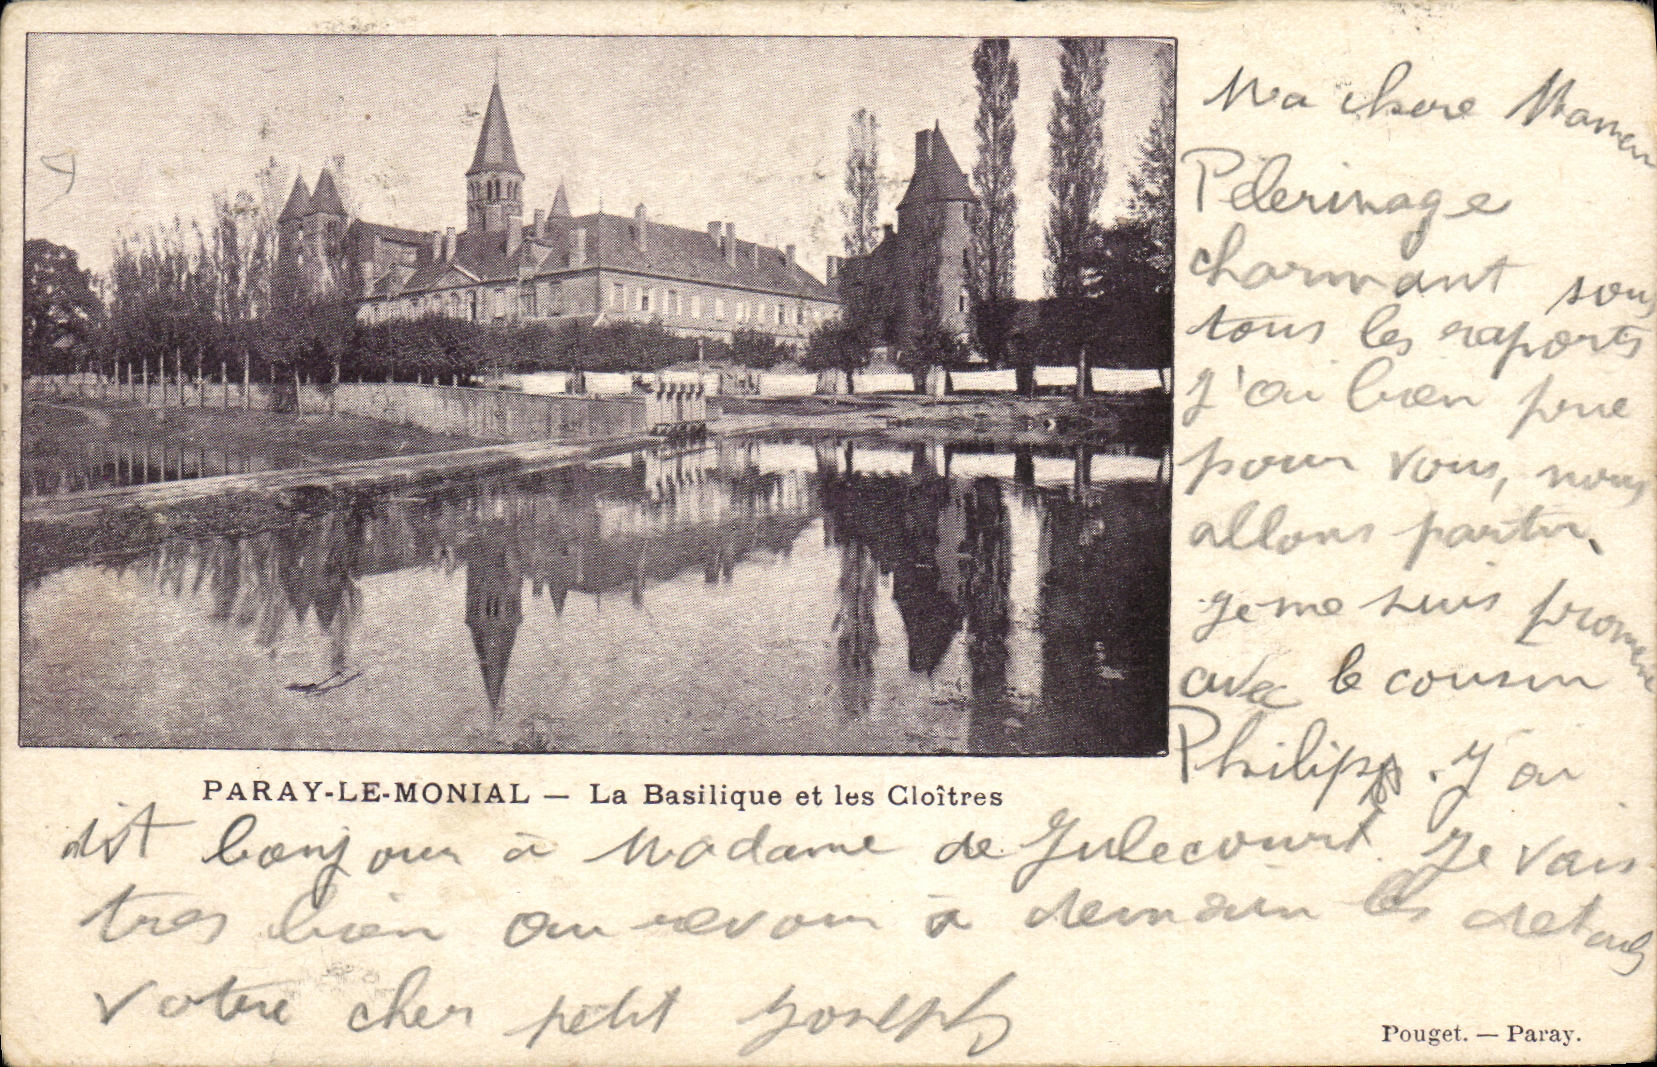 Ma chere Maman
Pélerinage
charmant sous
tous les raports
J'ai bien prie
pour vous, nous
allons partir,
je me suis promene
avec le cousin
Philipp. J'ai
dit bonjour à Madame de Julecourt. Je vais
tres bien au revoir à demain les details
votre cher petit Joseph
PARAY-LE-MONIAL — La Basilique et les Cloîtres
Pouget. — Paray.